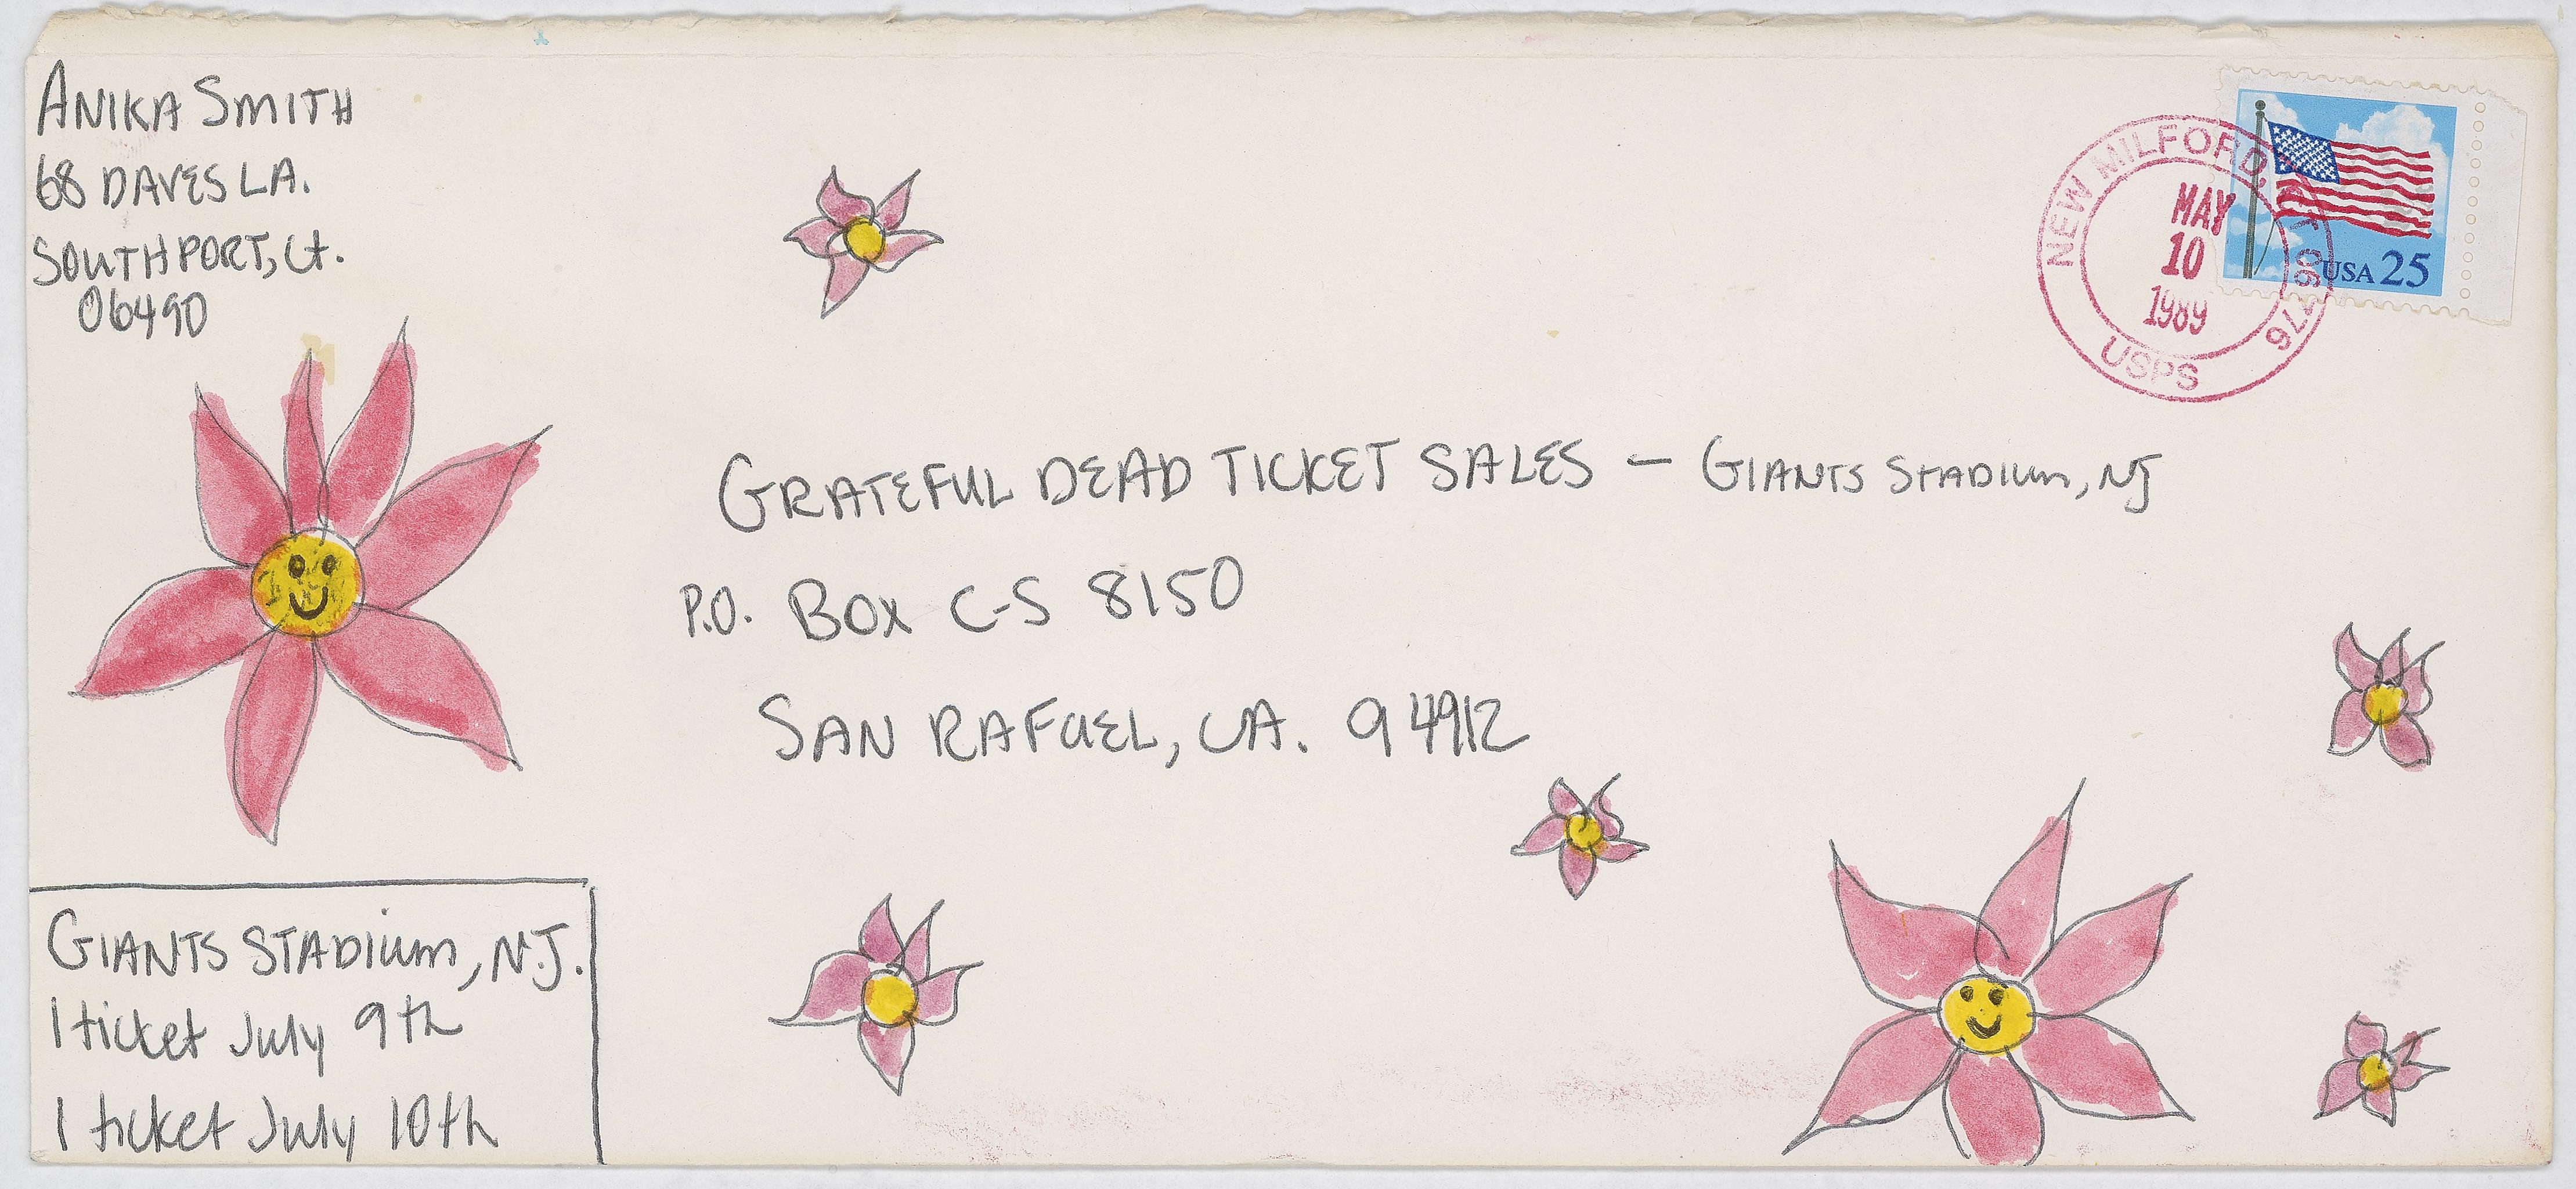 ANIKA SMITH
68 DAVES LA.
SOUTHPORT, Ct.
06490
NEW MILFORD, CT 06776
MAY
10
1989
USPS
USA 25
GRATEFUL DEAD TICKET SALES — GIANTS STADIUM, NJ
P.O. BOX C-S 8150
SAN RAFAEL, CA. 94912
GIANTS STADIUM, N.J.
1 ticket July 9th
1 ticket July 10th